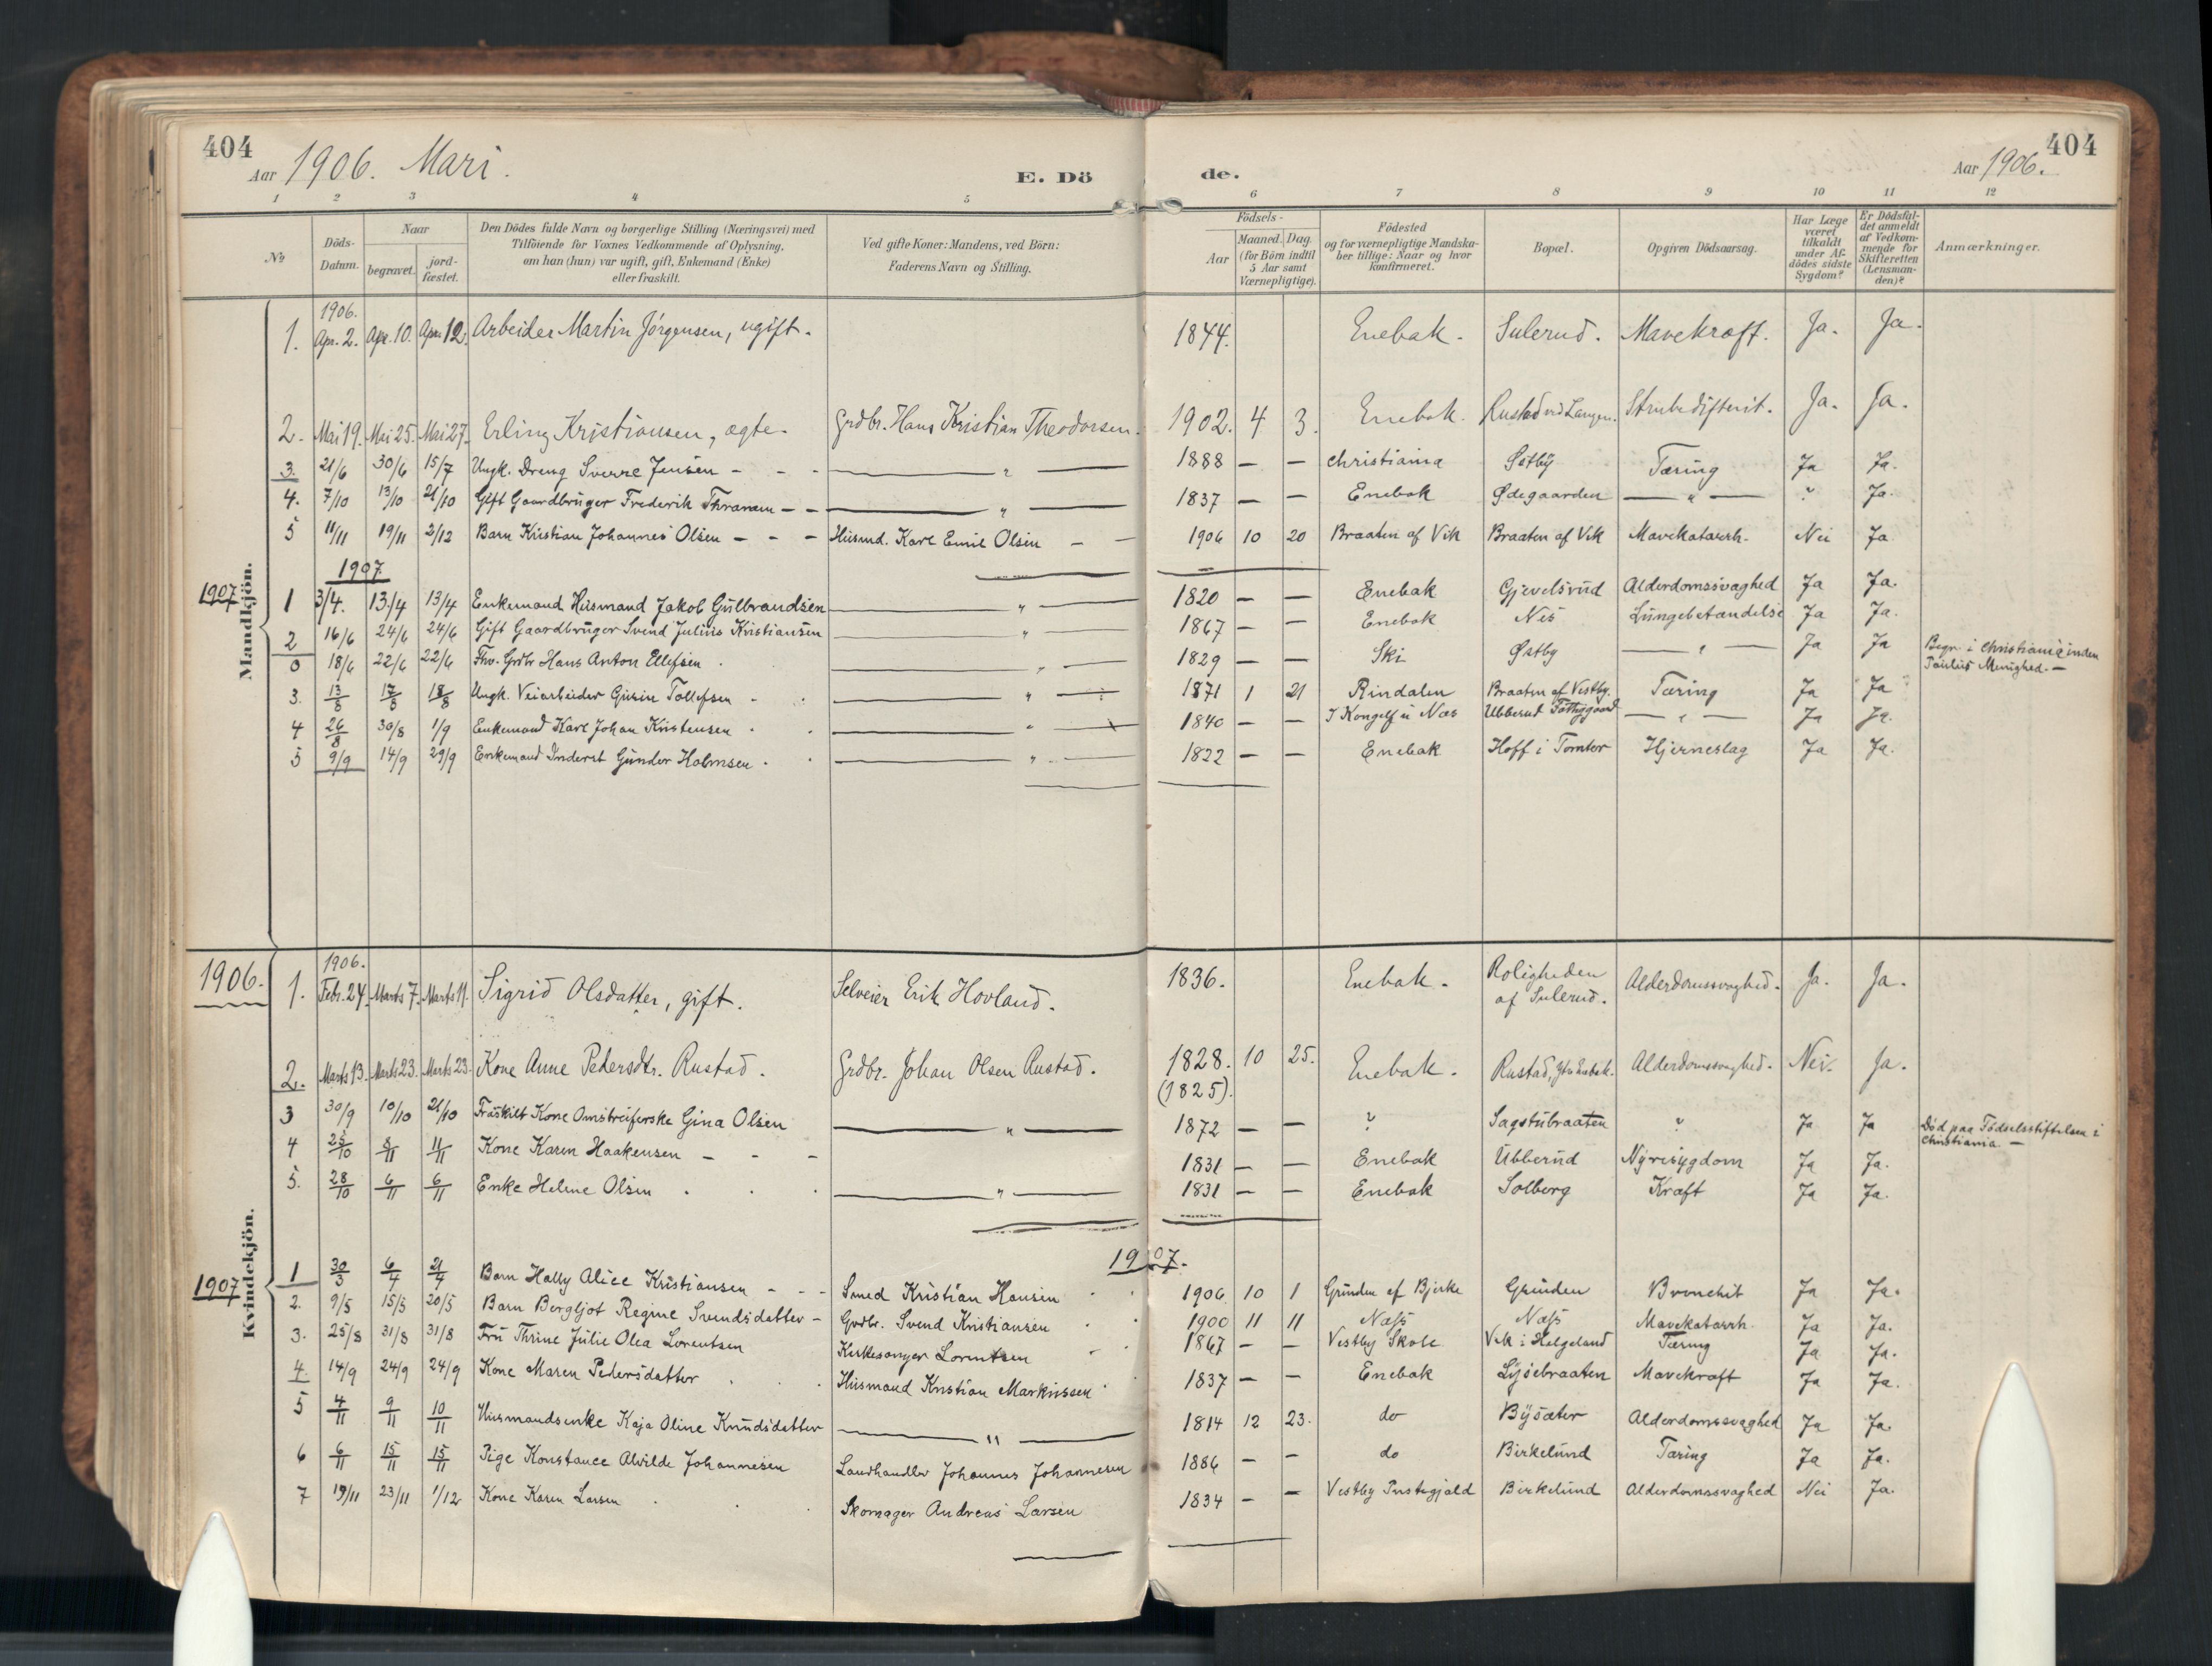 404
Aar 1906. Mari.
E. Dö de.
Aar 1906.
404
1 2 3 4 5 6 7 8 9 10 11 12
No
Döds-Datum.
Naar
begravet.
jord-fæstet.
Den Dödes fulde Navn og borgerlige Stilling (Næringsvei) med
Tilföiende for Voxnes Vedkommende af Oplysning,
om han (hun) var ugift, gift, Enkemand (Enke)
eller fraskilt.
Ved gifte Koner: Mandens, ved Börn:
Faderens Navn og Stilling.
Födsels-
Aar
Maaned. Dag.
(for Börn indtil
5 Aar samt
Værnepligtige).
Födested
og for værnepligtige Mandska-
ber tillige: Naar og hvor
konfirmeret.
Bopæl.
Opgiven Dödsaarsag.
Har Læge
været
tilkaldt
under Af-
dödes sidste
Sygdom?
Er Dödsfal-
det anmeldt
af Vedkom-
mende for
Skifteretten
(Lensman-
den)?
Anmærkninger.
Mandkjön.
1906.
1. Apr. 2. Apr. 10. Apr. 12. Arbeider Martin Jörgensen, ugift. 1844. Enebak. Sulerud. Mavekræft. Ja. Ja.
2. Mai 19. Mai 25. Mai 27. Erling Kristiansen, ægte. Grdbr. Hans Kristian Theodorsen. 1902. 4 3. Enebak. Rustad ved Langen. Strubedifterit. Ja. Ja.
3. 21/6 30/6 15/7 Ungk. Dreng Sverre Jensen - - - — " — 1888 — — Christiania Østby Tæring Ja Ja.
4. 7/10 13/10 21/10 Gift Gaardbruger Frederik Thranem - - — " — 1837 — — Enebak Ødegaarden — " — ? Ja.
5 11/11 19/11 2/12 Barn Kristian Johannes Olsen - - - Husmd. Karl Emil Olsen - - 1906 10 20 Braaten af Vik Braaten af Vik Mavekatarrh. Nei Ja
1907.
1907
1 3/4. 13./4 13/4 Enkemand Husmand Jakob Gulbrandsen — " — 1820 — — Enebak Gjevelsrud Alderdomssvaghed Ja Ja.
2 16/6 24/6 24/6 Gift Gaardbruger Svend Julius Kristiansen — " — 1867 — — Enebak Nes Lungebetændelse Ja Ja.
0 18/6 22/6 22/6 Fhv. Grdbr Hans Anton Ellefsen . — " — 1829 — — Ski Østby — " — Ja Ja Begr. i Christiania inden
Paulus Menighed. —
3. 13/8 17/8 18/8 Ungk. Veiarbeider Gusin Tollefsen - . — " — 1871 1 21 Rindalen Braaten af Vestby. Tæring Ja Ja
4 26/8 30/8 1/9 Enkemand Karl Johan Kristensen . . — " — 1840 — — I Kongelf u Næs Ubberud Fattiggaard — " — Ja Ja.
5 9/9 14/9 29/9 Enkemand Inderst Gunder Holmsen . . — " — 1822 — — Enebak Hoff i Tomter Hjerneslag Ja Ja.
Kvindekjön.
1906.
1906.
1. Febr. 24. Marts 7. Marts 11. Sigrid Olsdatter, gift. Selveier Erik Hovland. 1836. Enebak. Roligheden
af Sulerud. Alderdomssvaghed. Ja. Ja.
2. Marts 13. Marts 23. Marts 23. Kone Anne Pedersdtr. Rustad. Grdbr. Johan Olsen Rustad. 1828. 10 25. Enebak. Rustad, Ytre Enebak. Alderdomssvaghed. Nei. Ja.
(1825).
3 30/9 10/10 21/10 Fraskilt Kone Omstreiferske Gina Olsen — " — 1872 — — ? Sagstubraaten " Ja Ja Död paa Födselsstiftelsen i
Christiania. —
4 25/10 8/11 11/11 Kone Karen Haakensen - - - 1831 — — Enebak Ubberud Nyresygdom Ja Ja.
5. 28/10 6/11 6/11 Enke Helene Olsen . . . — " — 1831 — — Enebak Solberg Kræft Ja Ja.
1907.
1907
1 30/3 6/4 21/4 Barn Hally Alice Kristiansen - - - Smed Kristian Hansen . . 1906 10 1 Grinden af Bjerke Grinden Bronchit Ja Ja.
2. 9/5 15/5 20/5 Barn Bergljot Regine Svendsdatter - Grdbr. Svend Kristiansen . . 1900 11 11 Næss Næss Mavekatarrh. Ja Ja.
3. 25/8 31/8 31/8 Fru Thrine Julie Olea Lorentsen Kirkesanger Lorentsen - 1867 — — Vestby Skole Vik i Helgeland Tæring Ja Ja.
4. 14/9 24/9 24/9 Kone Maren Pedersdatter . . . Husmand Kristian Markussen . 1837 — — Enebak Lysebraaten Mavekræft Ja Ja.
5 4/11 9/11 10/11 Husmandsenke Kaja Oline Knudsdatter — " — 1814 12 23. do Bysæter Alderdomssvaghed Ja Ja.
6 6/11 15/11 15/11 Pige Konstance Alvilde Johannesen Landhandler Johannes Johannesen 1886 — — do Birkelund Tæring Ja Ja.
7 19/11 23/11 1/12 Kone Karen Larsen . . . Skomager Andreas Larsen 1834 — — Vestby Prestegjeld Birkelund Alderdomssvaghed Nei Ja.